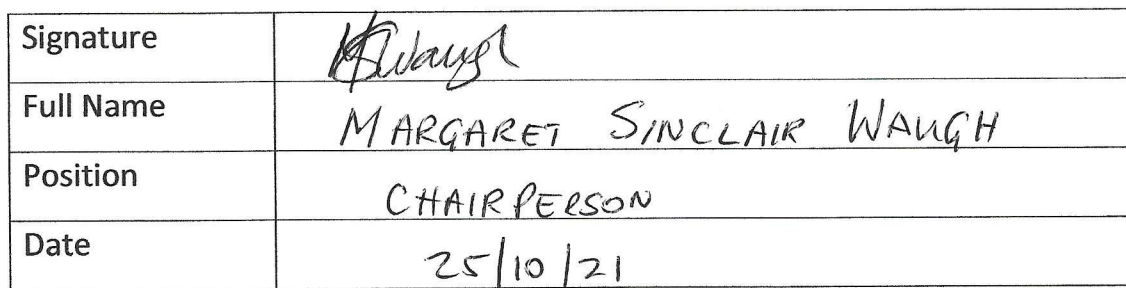 Signature MSWaugh
Full Name MARGARET SINCLAIR WAUGH
Position CHAIRPERSON
Date 25/10/21